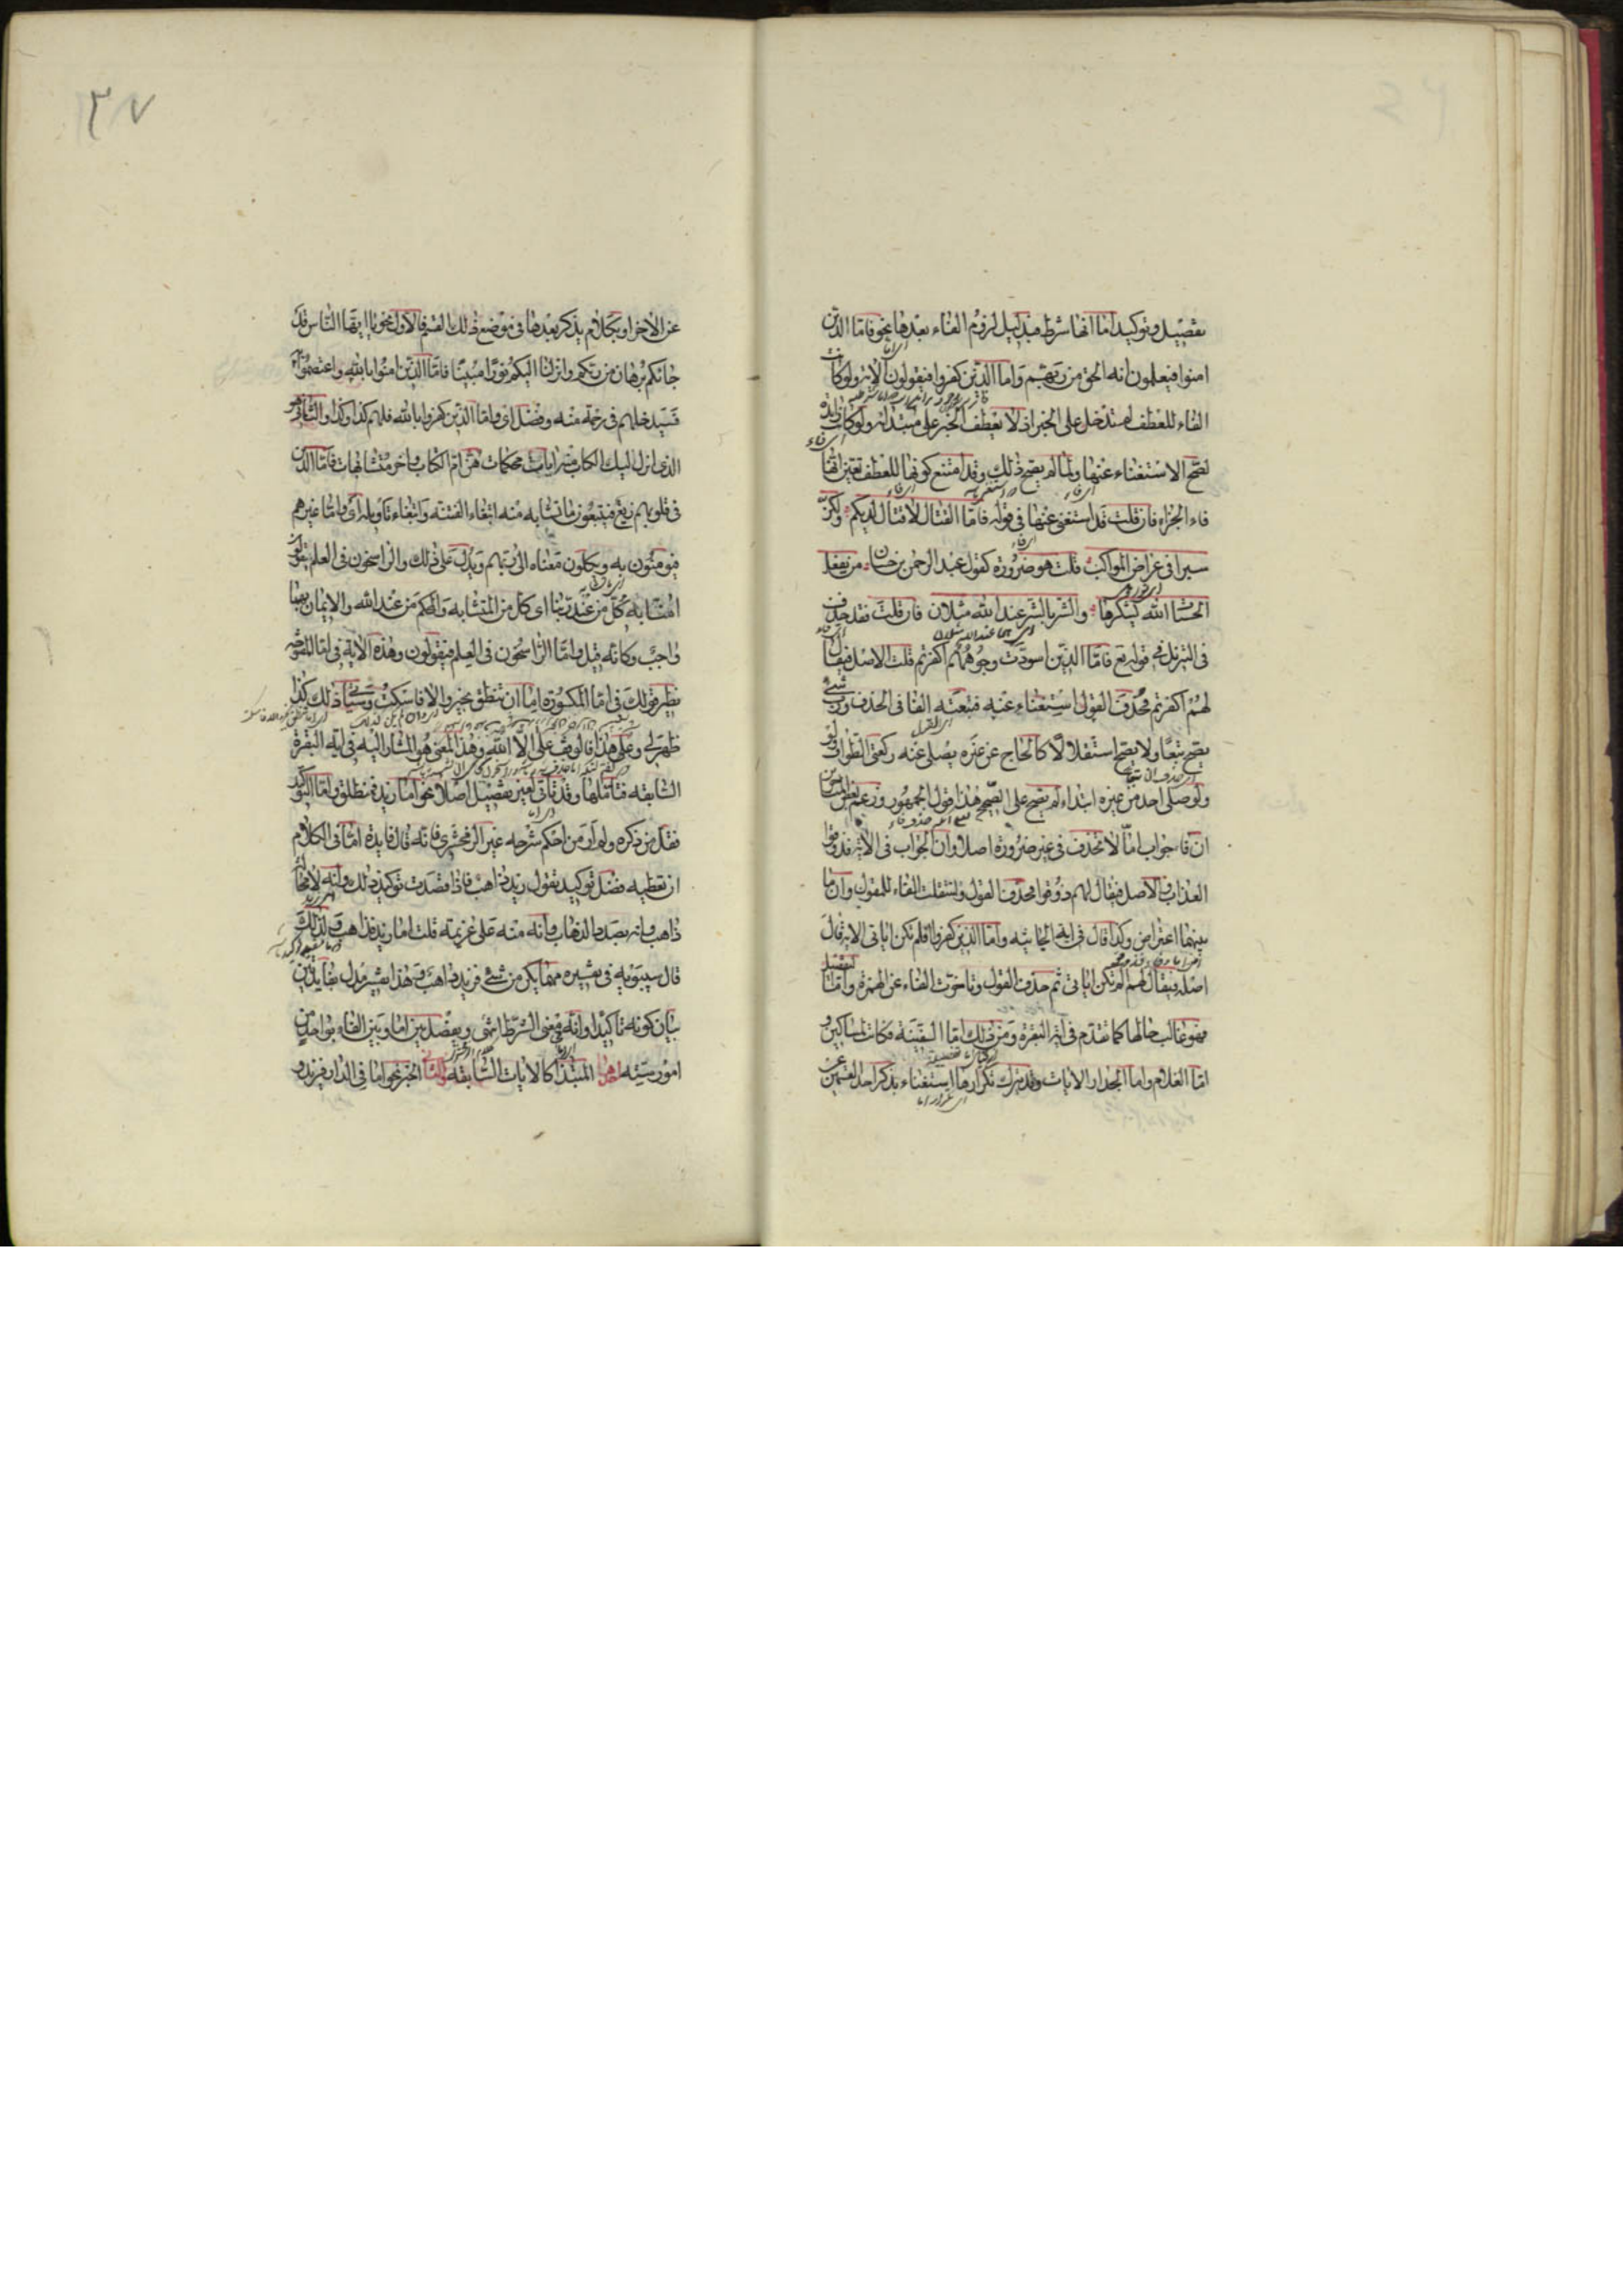 تفصيل وتوكيد اما انها شرط فبدليل لزوم الفاء بعدها نحو فاما الذين
امنوا فيعلمون انه الحق من ربهم واما الذين كفروا فيقولون الاية ولو كانت
الفاء للعطف لم تدخل على الخبر اذ لا يعطف الخبر على مبتدائه ولو كانت زايدة
لصح الاستغناء عنها ولما لم يصح ذلك وقد امتنع كونها للعطف تعين انها
فاء الجزاء فان قلت قد استغنى عنها في قوله فاما القتال لا قتال لديكم ولكن
سيرا في عراض المواكب قلت هو ضرورة كقول عبد الرحمن بن حسان من يفعل
الحسنات الله يشكرها والشر بالشر عند الله مثلان فان قلت فقد حذف
في التنزيل في قوله تع فاما الذين اسودت وجوههم اكفرتم قلت الاصل فيقال
لهم اكفرتم فحذف القول استغناء عنه فتبعته الفا في الحذف ورب شئ
يصح تبعا ولا يصح استقلالا كالحاج عن غيره يصلي عنه ركعتي الطواف
ولو صلى احد عن غيره ابتداء لم يصح على الصحيح هذا قول الجمهور وزعم بعض المتاخرين
ان فا جواب اما لا تحذف في غير ضرورة اصلا وان الجواب في الاية فذوقوا
العذاب والاصل فيقال لهم ذوقوا فحذف القول وانتقلت الفاء للمقول وان ما
بينهما اعتراض وكذا قال في اية الجاثية واما الذين كفروا افلم تكن اياتي الاية قال
اصله فيقال لهم الم تكن اياتي ثم حذف القول وتاخرت الفاء عن الهمزة واما التفصيل
فهو غالب حالها كما تقدم في اية البقرة ومن ذلك اما السفينة فكانت لمساكين و
اما الغلام واما الجدار الايات وقد يترك تكرارها استغناء بذكر احد القسمين
عن الاخر او بكلام يذكر بعدها في موضع ذلك القسم فالاول نحو يا ايها الناس قد
جاءكم برهان من ربكم وانزلنا اليكم نورا مبينا فاما الذين امنوا بالله واعتصموا به
فسيدخلهم في رحمة منه وفضل اي واما الذين كفروا بالله فلهم كذا وكذا والثاني هو
الذي انزل اليك الكتاب منه ايات محكمات هن ام الكتاب واخر متشابهات فاما الذين
في قلوبهم زيغ فيتبعون ما تشابه منه ابتغاء الفتنة وابتغاء تاويله اي واما غيرهم
فيؤمنون به ويكلون معناه الى ربهم ويدل على ذلك والراسخون في العلم يقولون
امنا به كل من عند ربنا اي كل من المتشابه والمحكم من عند الله والايمان بهما
واجب وكانه قيل واما الراسخون في العلم فيقولون وهذه الاية في اما المفتوحة
نظير قولك في اما المكسورة اما ان تنطق بخير والا فاسكت وسياتي ذلك كذا
ظهر لي وعلى هذا فالوقف على الا الله وهذا المعنى هو المشار اليه في اية البقرة
السابقة فتاملها وقد تاتي لغير تفصيل اصلا نحو اما زيد فمنطلق واما التوكيد
فقل من ذكره ولم ار من احكم شرحه غير الزمخشري فانه قال فايدة اما في الكلام
ان تعطيه فضل توكيد تقول زيد ذاهب فاذا قصدت توكيد ذلك وانه لا محالة
ذاهب وانه بصدد الذهاب وانه منه على عزيمة قلت اما زيد فذاهب ولذلك
قال سيبويه في تفسيره مهما يكن من شئ فزيد ذاهب وهذا تفسير مدل بفايدتين
بيان كونه تاكيدا وانه في معنى الشرط انتهى ويفصل بين اما وبين الفاء بواحد من
امور ستة احدها المبتدا كالايات السابقة والثاني الخبر نحو اما في الدار فزيد و